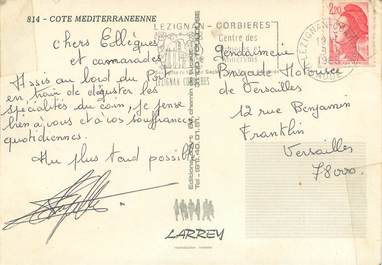 814 - COTE MEDITERRANEENNE
Chers Collègues
et camarades
Assis au bord du Port
en train de déguster les
spécialités du coin, je pense
bien à vous et à vos souffrances
quotidiennes.
Au plus tard possible
LEZIGNAN - CORBIERES
Centre des
LEZIGNAN CORBIERES
2,20
Gendarmerie
Brigade Motorisée
de Versailles
12 rue Benjamin
Franklin
Versailles
78000.
LARREY